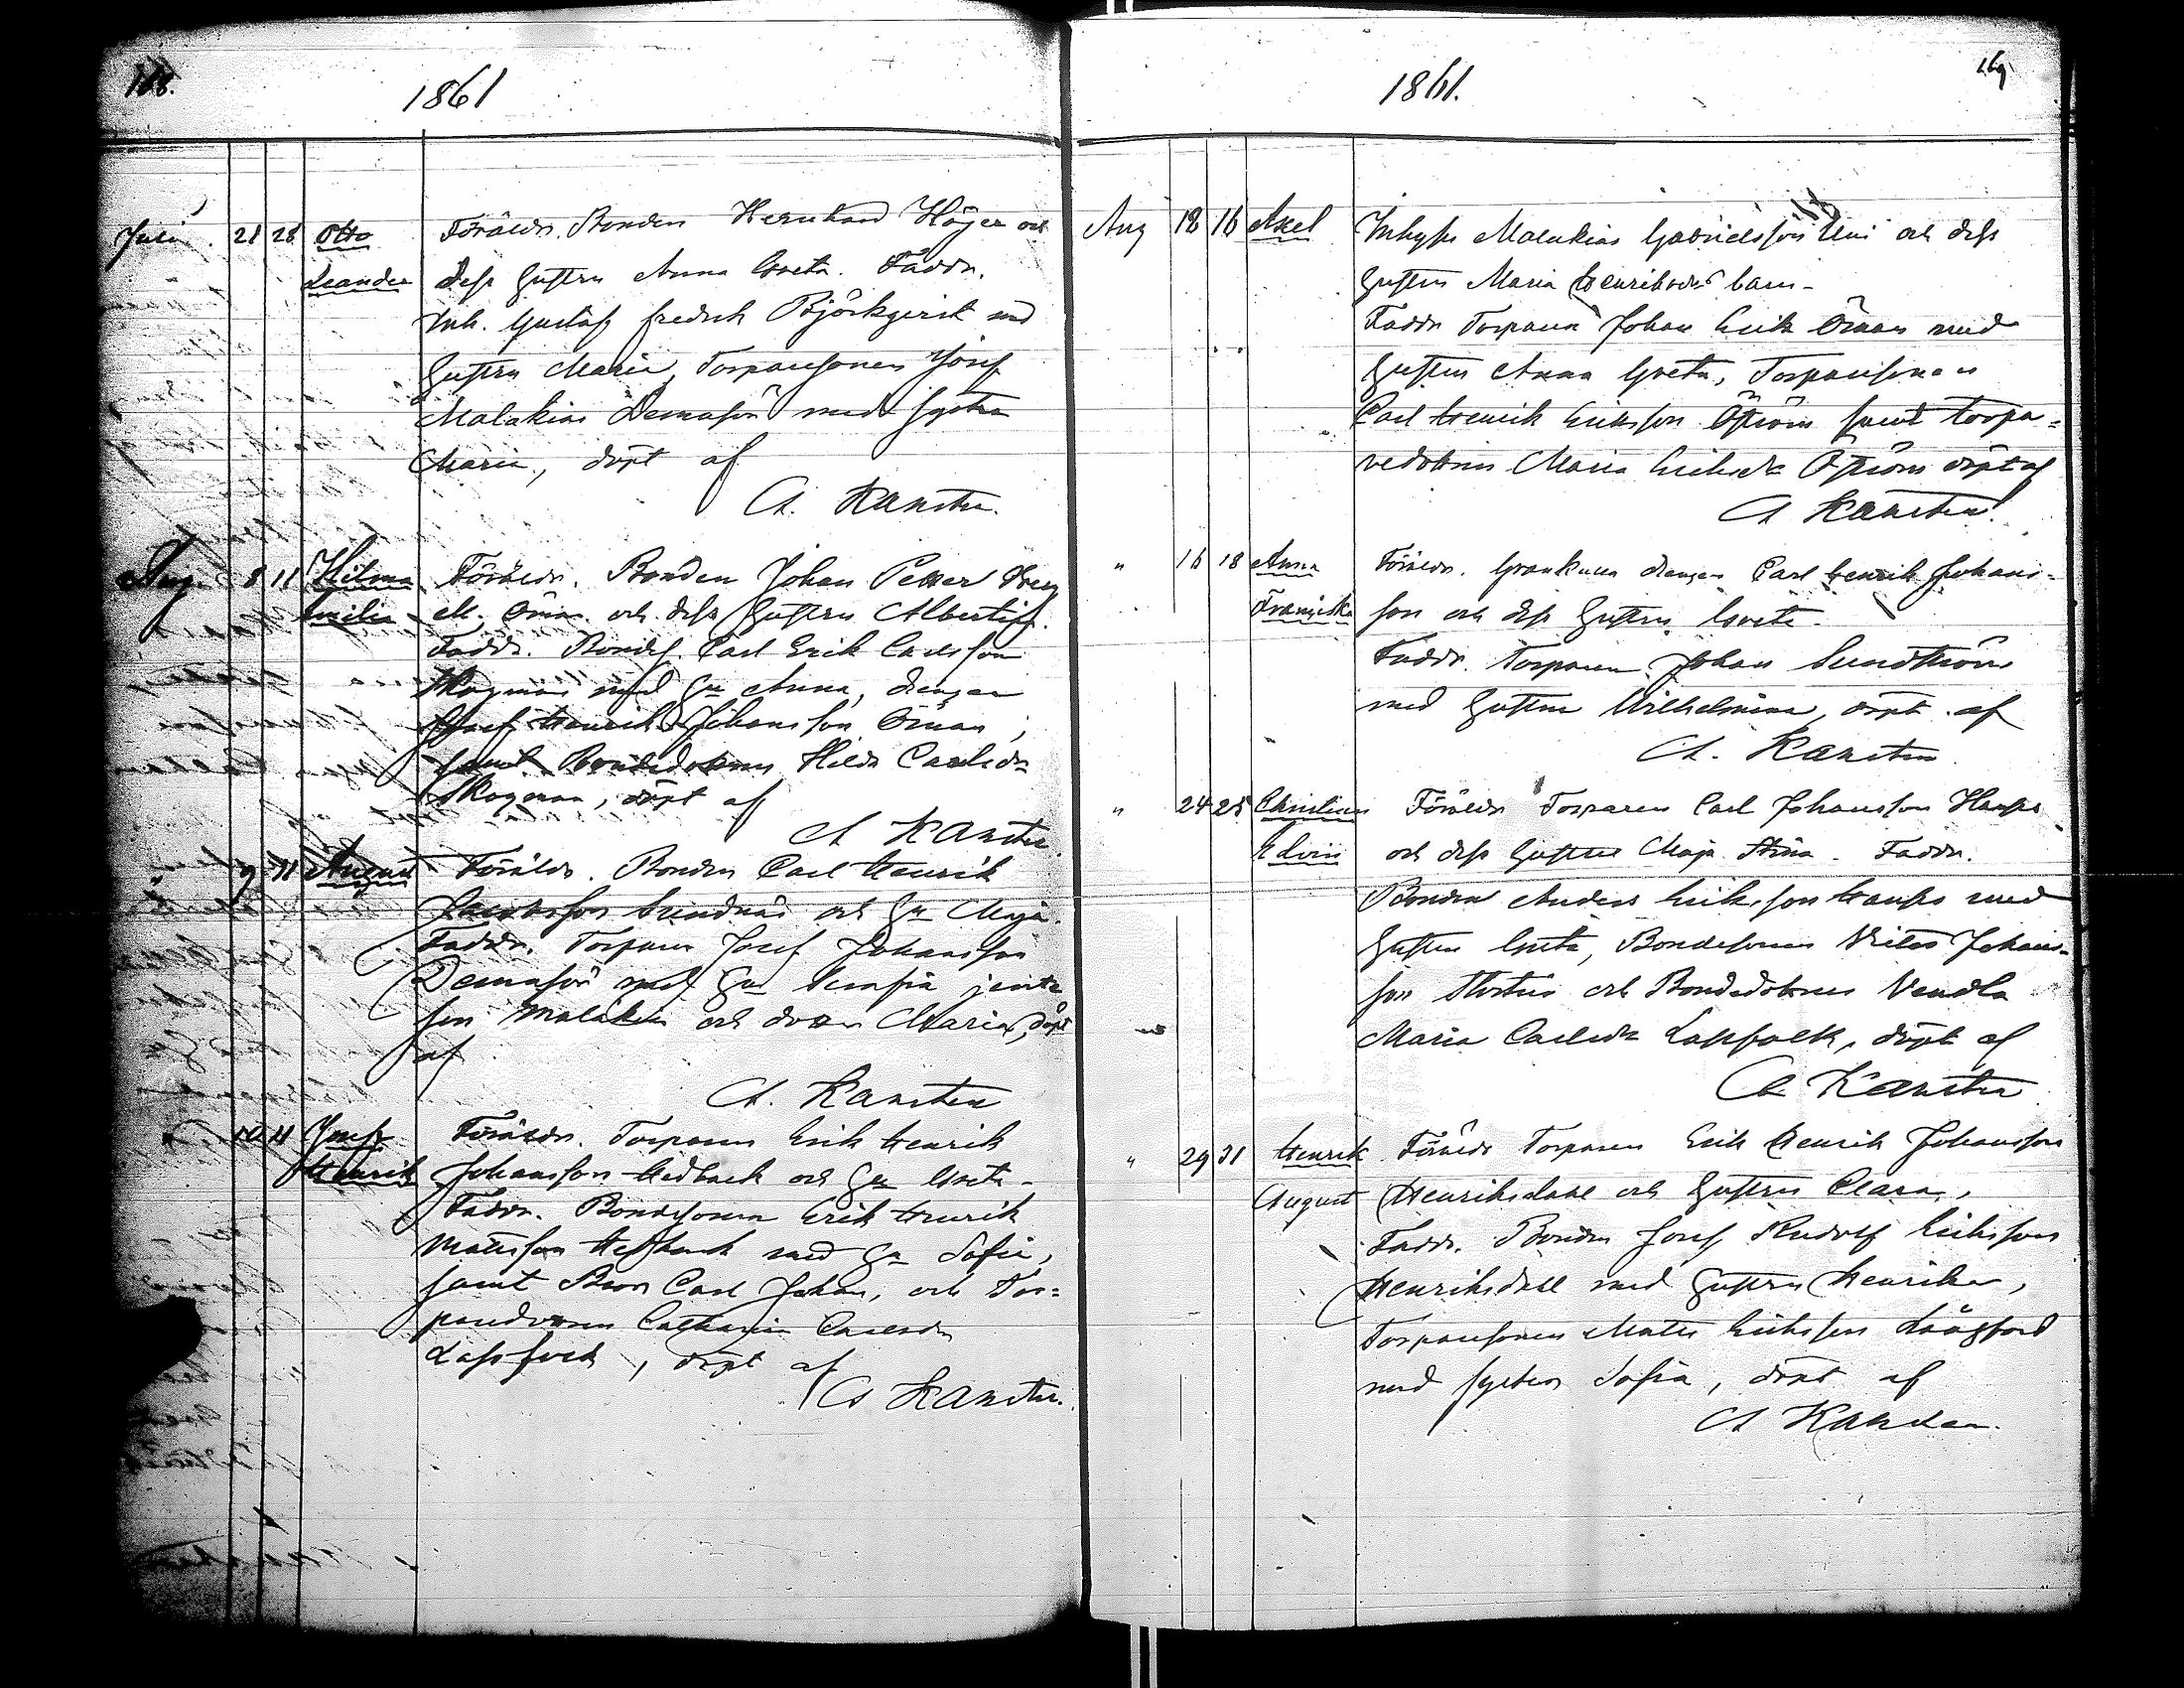 168.
1861
Juli 21 28 Otto Föräldr. Bonden Hernhard Höger och
Leander dess hustru Anna Greta. Faddr.
Inh. Gustaf Fredrik Björkqvist med
hustru Maria, Torparesonen Josef
Malakias Demasjö med syster
Maria, döpt af
A. Karsten.
Aug. 8 11 Hilma Föräldr. Bonden Johan Petter
Emilia Öman och dess hustru Albertina.
Faddr. Bondes. Carl Erik Carlsson
Skogman med hu Anna, drengen
Josef Henrik Johansson Öman,
samt Bondedottren Hilda Carlsdr
Skogman, döpt af
A Karsten.
9 11 August Föräldr. Bonden Carl Henrik
Jacobsson Sundnäs och hu Maja.
Faddr. Torparen Josef Johansson
Demasjö med hu Serafia jemte
son Malakias och dotter Maria, döpt
af
A. Karsten
10 11 Josef Föräldr. Torparen Erik Henrik
Henrik Johansson Hedback och hu Greta.
Faddr. Bondesonen Erik Henrik
Mattsson med hu Sofia,
samt Bror Carl Johan, och Tor=
paredottren Catharina Carlsdr
Lassfolk, döpt af
A Karsten.
169
1861.
Aug 12 16 Axel Inhyses Malakias Gabrielsson och dess
hustru Maria Henriksdrs barn.
Faddr Torparen Johan Erik Öman med
hustru Anna Greta, Torparesonen
Carl Henrik Eriksson Öström samt torpa=
redottren Maria Eriksdr Öström döpt af
A Karsten.
" 16 18 Anna Föräldr. drengen Carl Henrik Johans=
Franziska son och dess hustru Greta.
Faddr. Torparen Johan Sundström
med hustru Wilhelmina, döpt af
A. Karsten
" 24 25 Christina Föräldr Torparen Carl Johansson
Elvira och dess hustru Maja Stina. Faddr.
Bonden Anders Eriksson med
hustru Greta, Bondesonen Johans=
son och Bondedottren Vendla
Maria Carlsdr Lassfolk, döpt af
A Karsten
" 29 31 Henrik Föräldr Torparen Erik Henrik Johansson
August Henriksdahl och hustru Clara,
Faddr. Bonden Josef Rudolf Eriksson
Henriksdahl med hustru Henrika,
Torparesonen Matts Eriksson Långfors
med syster Sofia, döpt af
A Karsten.